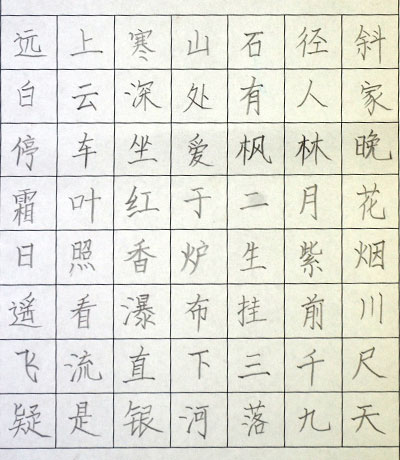 远上寒山石径斜
白云深处有人家
停车坐爱枫林晚
霜叶红于二月花
日照香炉生紫烟
遥看瀑布挂前川
飞流直下三千尺
疑是银河落九天